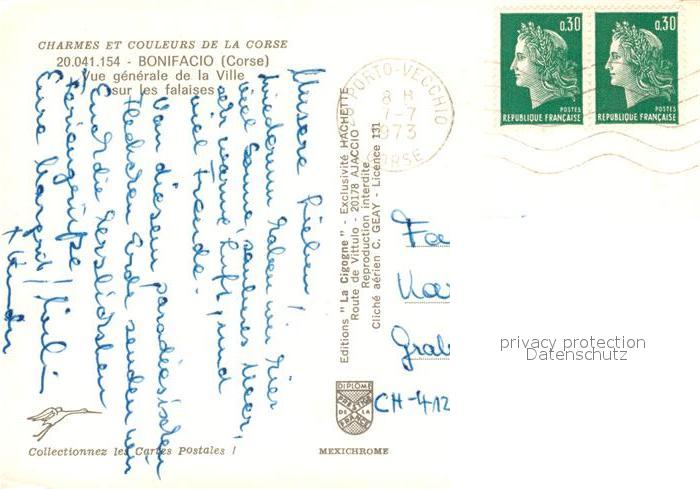 CHARMES ET COULEURS DE LA CORSE
20.041.154 - BONIFACIO (Corse)
Vue générale de la Ville
sur les falaises
Unsere Lieben!
Wiederum haben wir hier
viel Sonne, sauberes Meer,
sehr warme Luft, und
viel Freude.
Von diesem paradiesischen
Fleckchen Erde senden wir
Euch die herzlichsten
Feriengrüsse
Eure Margrit
Collectionnez les Cartes Postales !
Editions "La Cigogne" - Exclusivité HACHETTE
Route de Vittulo - 20178 AJACCIO
Reproduction interdite
Cliché aérien C. GEAY - Licence 131
DIPLOME
PRESTIGE
DE LA
FRANCE
MEXICHROME
PORTO-VECCHIO
8 H
7-7
1973
CORSE
0.30
POSTES
REPUBLIQUE FRANÇAISE
0.30
POSTES
REPUBLIQUE FRANÇAISE
Fa
Grab
CH-412
privacy protection
Datenschutz